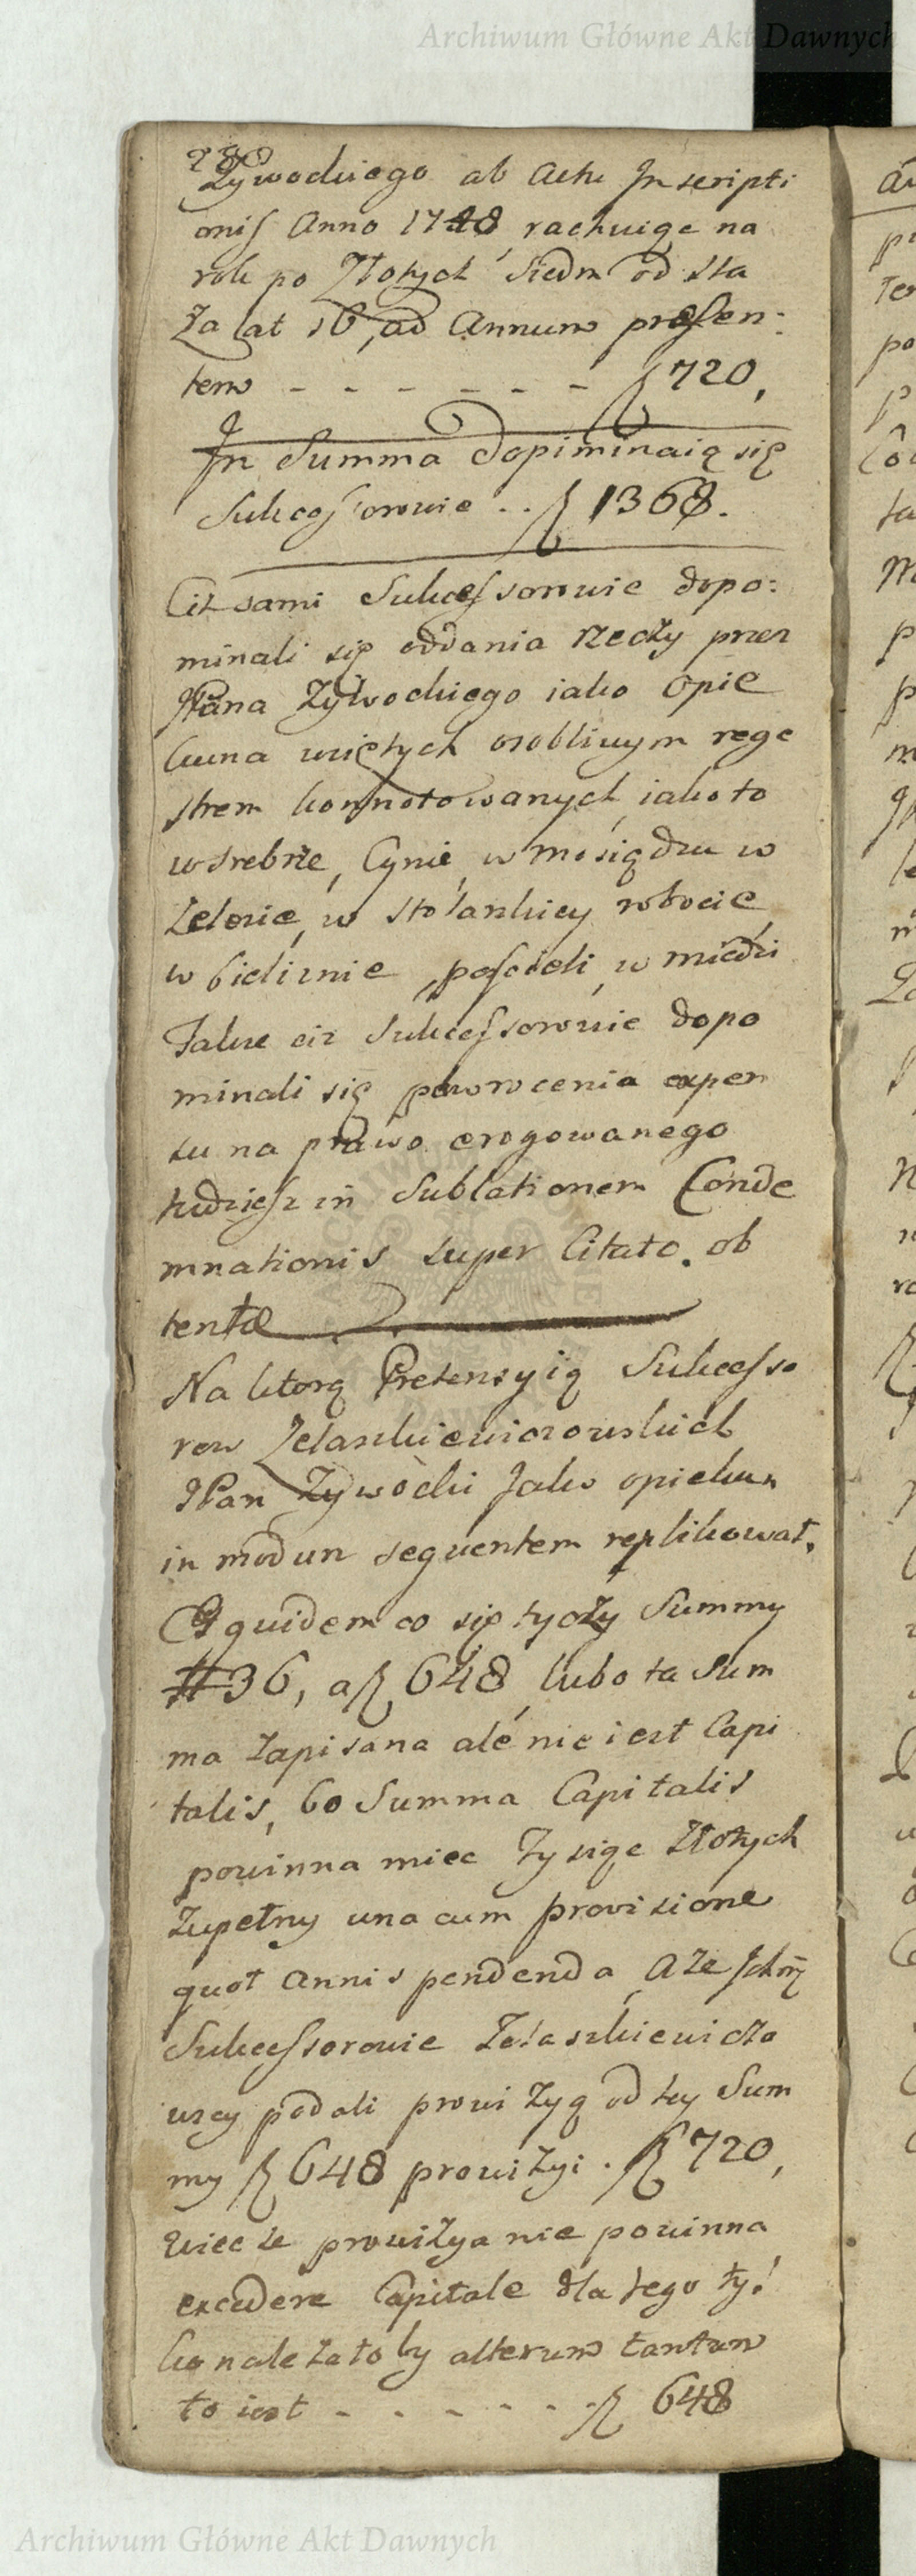 Archiwum Główne Akt Dawnych
280
Zywockiego ab Actu Inscripti
onis Anno 1748, rachuiąc na
rok po Złotych Siedm od sta
Za lat 16, ad Annum præsen:
tem - - - - - - fl 720,
In Summa dopiminaią się
Sukcessorowie .. fl 1368.
Ciż sami Sukcessorowie dopo:
minali się oddania rzeczy przez
JPana Zywockiego iako Opie
kuna wziętych osobliwym rege
strem konnotowanych, iako to
w srebrze, Cynie, w mosiądzu w
Zelezie, w stolarskiey robocie
w bieliznie, poscieli, w miedzi
Takze ciz Sukcessorowie dopo
minali się powrocenia expen
su na prawo erogowanego
tudziesz in Sublationem Conde
mnationis super Citato. ob
tentæ
Na ktorą Pretensyią Sukcesso
row Zelaszkiewiczowskich
JPan Zywocki Jako opiekun
in modum sequentem replikował.
Et quidem co się tyczy Summy
# 36, a fl 648, lubo ta Sum
ma zapisana ale nie iest Capi
talis, bo Summa Capitalis
powinna miec Tysiąc Złotych
Zupełny una cum provisione
quot annis pendenda, A ze Ichmć
Sukcessorowie Zelaszkiewiczo
wscy podali prowizyą od tey Sum
my fl 648 prowizyi . fl 720,
Wiec ze prowizya nie powinna
excedere Capitale dla tego tyl
ko nalezałoby alterum tantum
to iest - - - - - - fl 648
Archiwum Główne Akt Dawnych